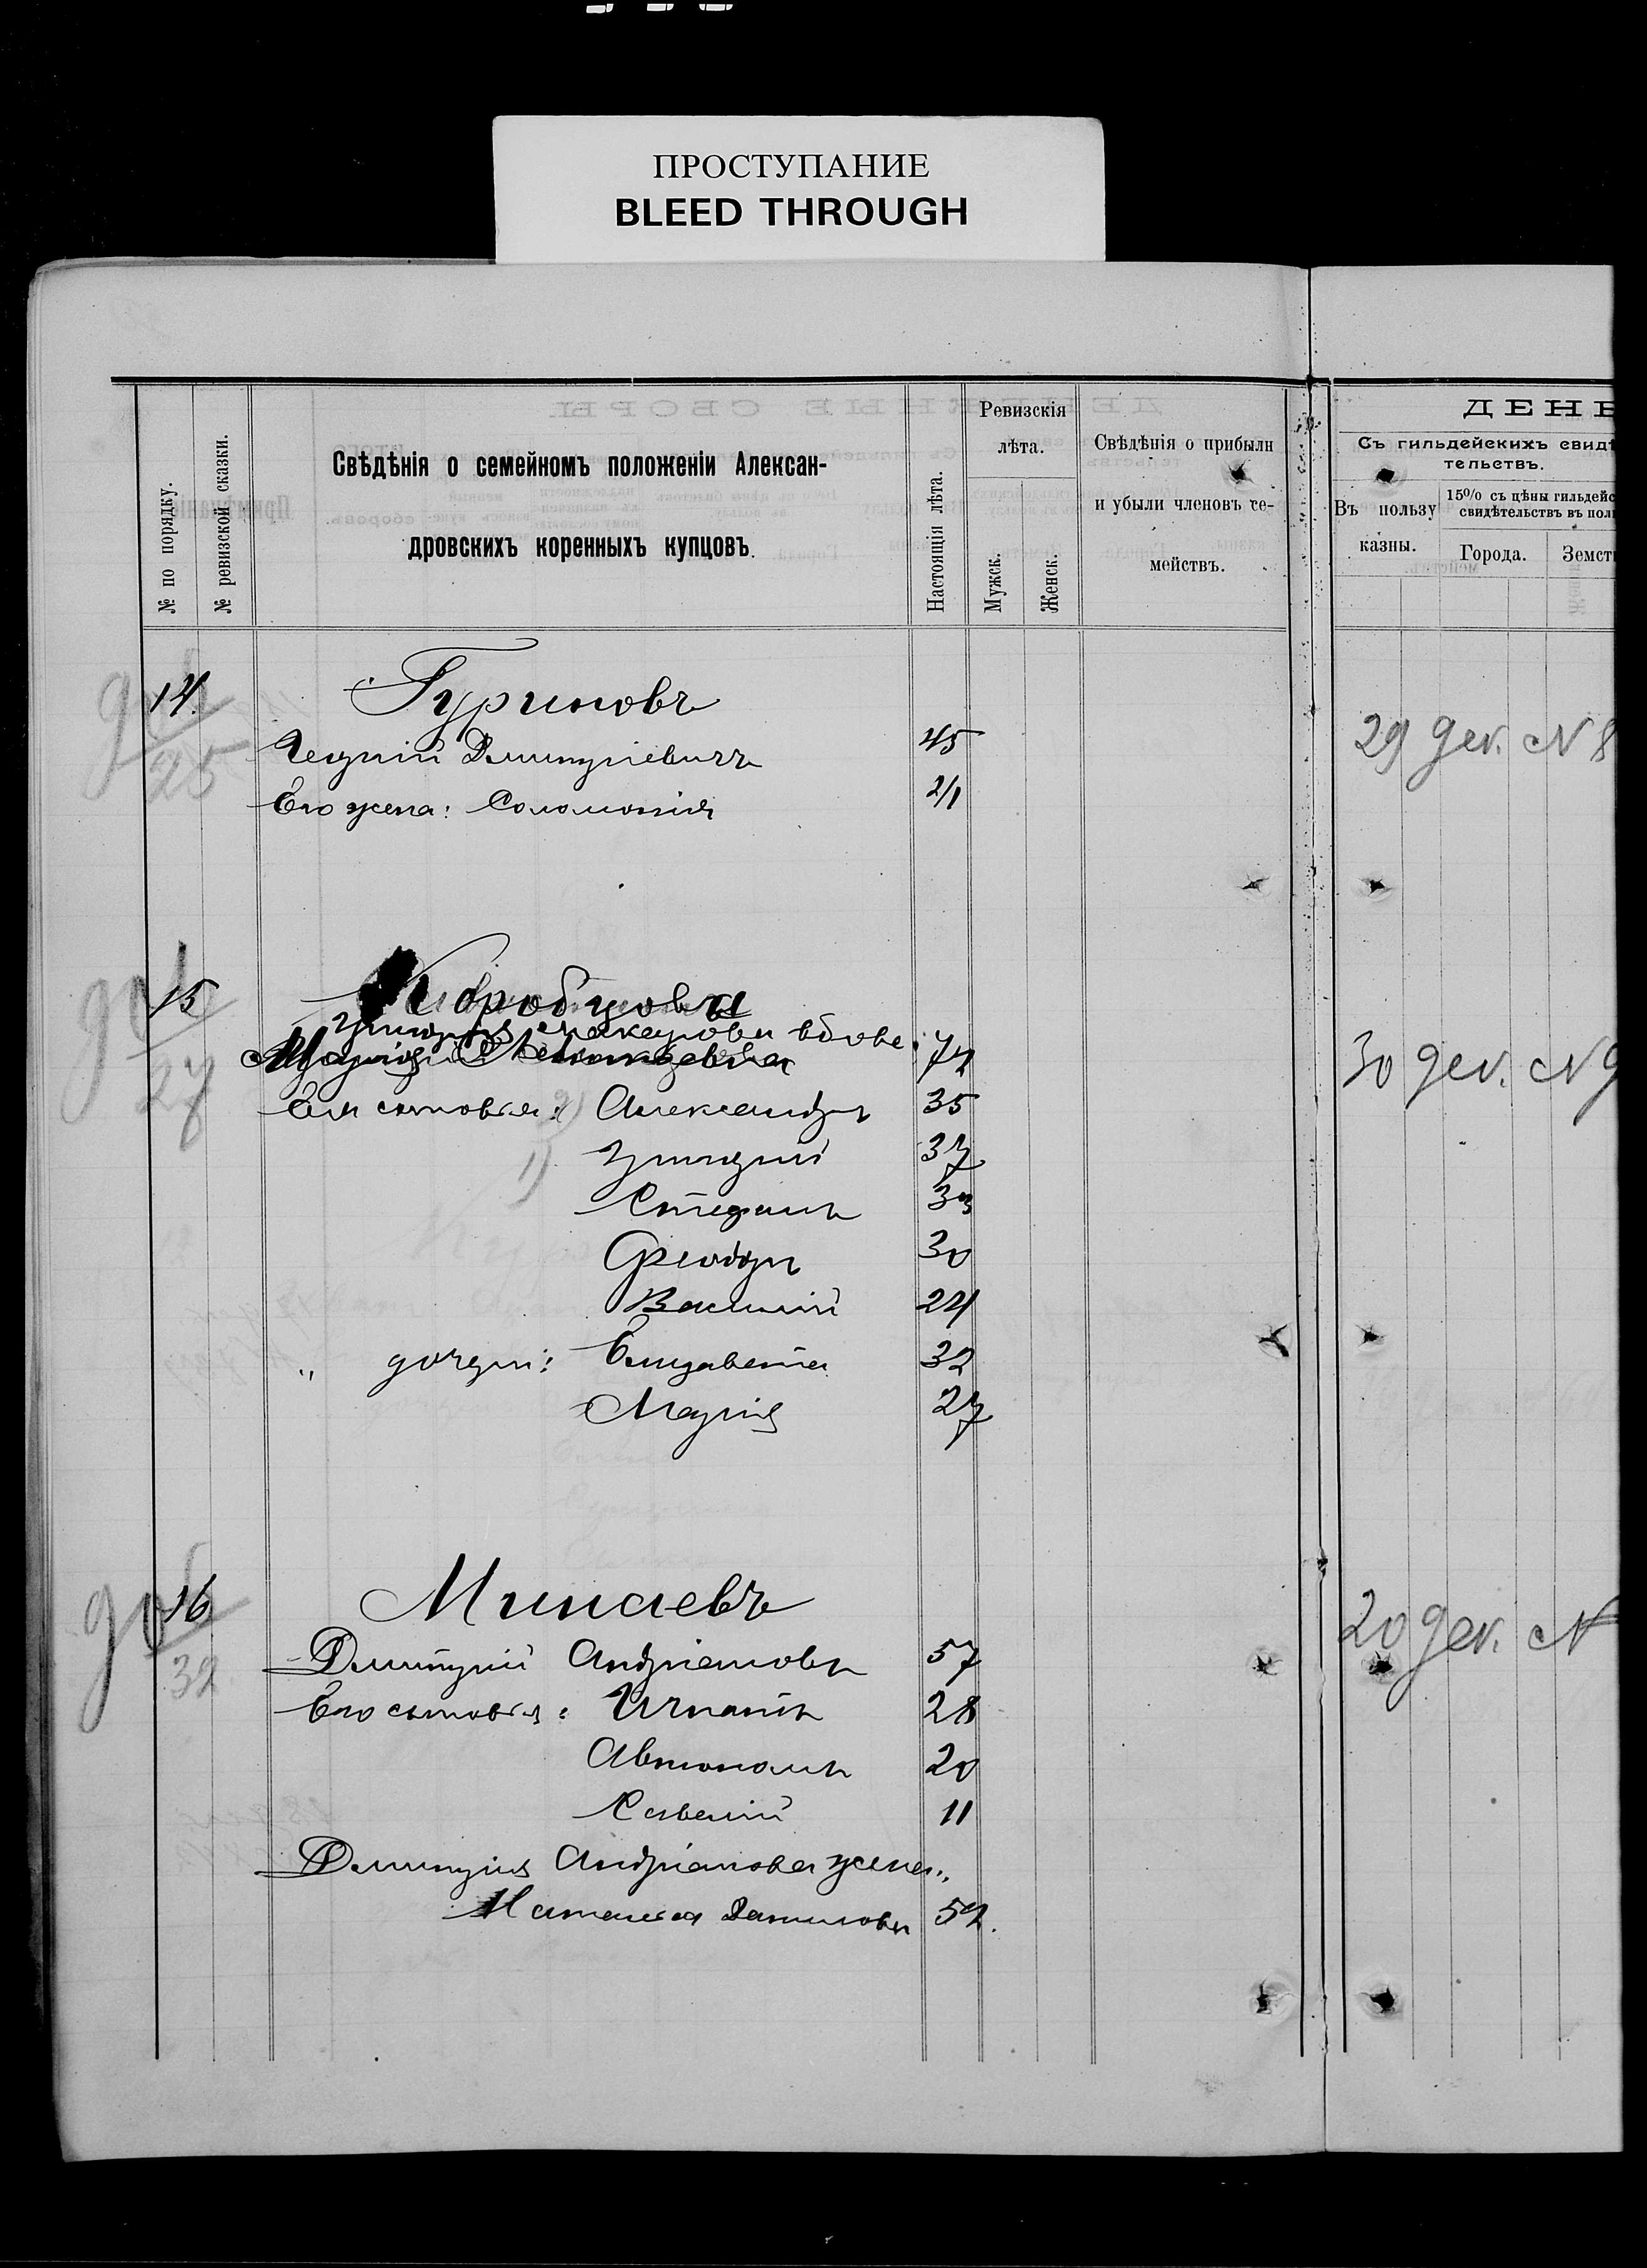 ПРОСТУПАНИЕ
BLEED THROUGH
№ по порядку.
№ ревизской сказки.
Свѣдѣнія о семейномъ положеніи Алексан-
дровскихъ коренныхъ купцовъ.
Настоящія лѣта.
Ревизскія
лѣта.
Мужск.
Женск.
Свѣдѣнія о прибыли
и убыли членовъ се-
мействъ.
ДЕНЕ
Съ гильдейскихъ свидѣ
тельствъ.
Въ пользу
казны.
15% съ цѣны гильдейс
свидѣтельствъ въ пол
Города.
Земст
14. Гуриновъ
25
Дмитріевичъ 45
Его жена: Соломонія 21
29 дек. № 8
15
27
Макарова вдова
Марія 72
30 дек. № 9
Ея сыновья: 2) Александръ 35
1) Григорій 37
Стефанъ 33
Феодоръ 30
Василій 24
" дочери: Елизавета 32
Марія 27
16 Минаевъ
32
Дмитрій Андріановъ 57
20 дек. №
Его сыновья: Игнатъ 28
Автономъ 20
Савелій 11
Дмитрія Андріанова жена,
Наталья Данилова 52.